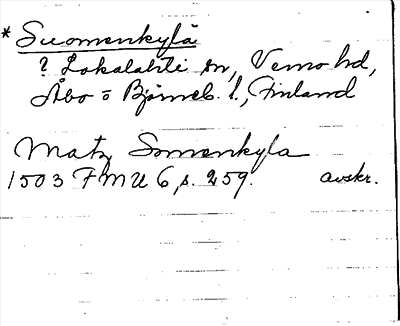 * Suomenkylä
? Lokalahti sn, Vemo hd,
Åbo o Björneb. l., Finland
Matz Somenkyla
1503 FMU 6, s. 259. avskr.